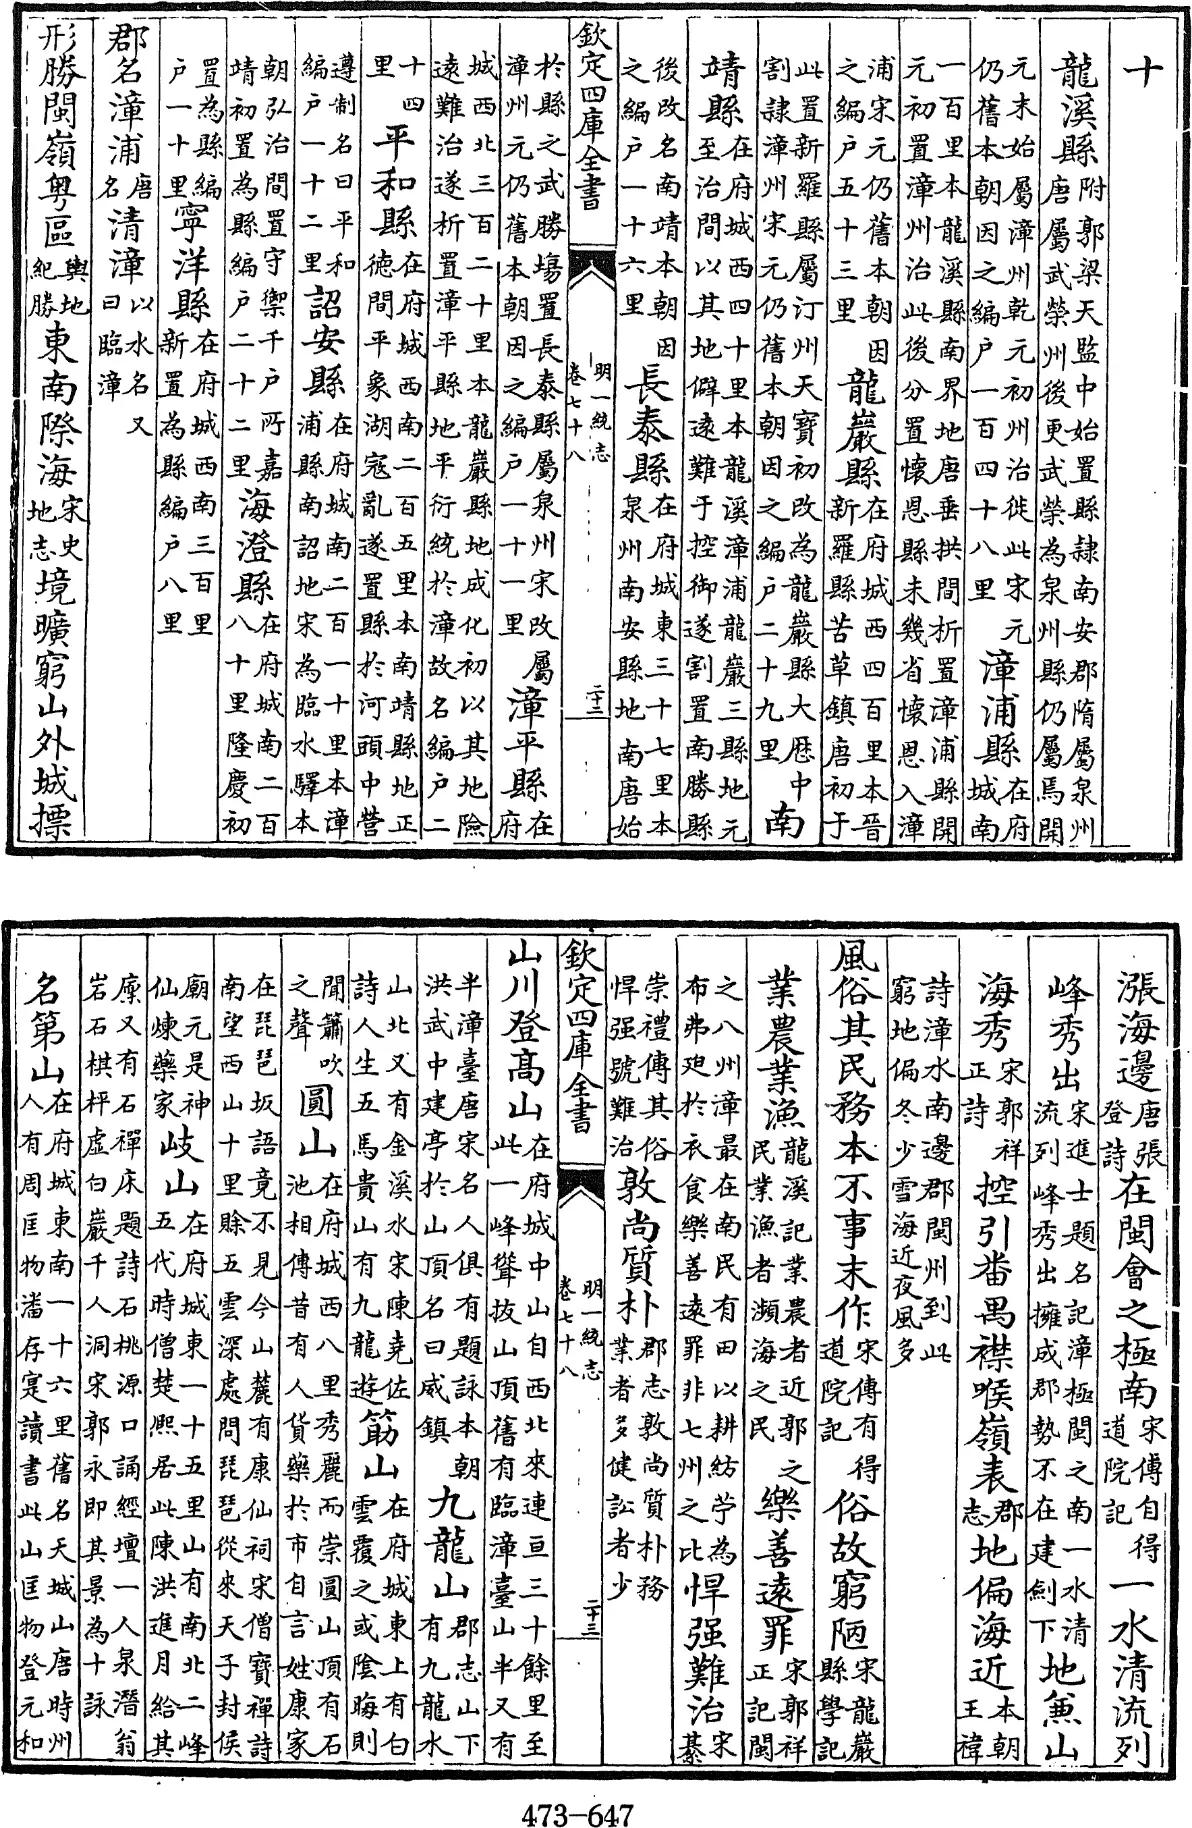 十
龍溪縣附郭梁天監中始置縣隸南安郡隋屬泉州唐屬武榮州後更武榮為泉州縣仍屬焉開
元末始屬漳州乾元初州治徙此宋元仍舊本朝因之編户一百四十八里漳浦縣在府城南
一百里本龍溪縣南界地唐垂拱間析置漳浦縣開元初置漳州治此後分置懷恩縣未幾省懷恩入漳
浦宋元仍舊本朝因之編户五十三里龍巖縣在府城西四百里本晉新羅縣苦草鎮唐初于
此置新羅縣屬汀州天寶初改為龍巖縣大厯中割隸漳州宋元仍舊本朝因之編户二十九里南
靖縣在府城西四十里本龍溪漳浦龍巖三縣地元至治間以其地僻遠難于控御遂割置南勝縣
後改名南靖本朝因之編户一十六里長泰縣在府城東三十七里本泉州南安縣地南唐始
欽定四庫全書
明一統志
卷七十八
二十二
於縣之武勝塲置長泰縣屬泉州宋改屬漳州元仍舊本朝因之編户一十一里漳平縣在府
城西北三百二十里本龍巖縣地成化初以其地險遠難治遂析置漳平縣地平衍統於漳故名編户二
十四里平和縣在府城西南二百五里本南靖縣地正德間平象湖寇亂遂置縣於河頭中營
遵制名曰平和編户一十二里詔安縣在府城南二百一十里本漳浦縣南詔地宋為臨水驛本
朝弘治間置守禦千户所嘉靖初置為縣編户二十二里海澄縣在府城南二百八十里隆慶初
置為縣編户一十里寧洋縣在府城西南三百里新置為縣編户八里
郡名漳浦唐名清漳以水名又曰臨漳
形勝閩嶺粤區輿地紀勝東南際海宋史地志境曠窮山外城摽
漲海邊唐張登詩在閩會之極南宋傅自得道院記一水清流列
峰秀出宋進士題名記漳極閩之南一水清流列峰秀出擁成郡勢不在建劍下地兼山
海秀宋郭祥正詩控引番禺襟喉嶺表郡志地偏海近本朝王褘
詩漳水南邊郡閩州到此窮地偏冬少雪海近夜風多
風俗其民務本不事末作宋傅有得道院記俗故窮陋宋龍巖縣學記
業農業漁龍溪記業農者近郭之民業漁者瀕海之民樂善遠罪宋郭祥正記閩
之八州漳最在南民有田以耕紡苧為布弗迫於衣食樂善遠罪非七州之比悍强難治宋綦
崇禮傳其俗悍强號難治敦尚質朴郡志敦尚質朴務業者多健訟者少
欽定四庫全書
明一統志
卷七十八
二十三
山川登高山在府城中山自西北來連亘三十餘里至此一峰聳拔山頂舊有臨漳臺山半又有
半漳臺唐宋名人俱有題詠本朝洪武中建亭於山頂名曰威鎮九龍山郡志山下有九龍水
山北又有金溪水宋陳堯佐詩人生五馬貴山有九龍遊筋山在府城東上有白雲覆之或陰晦則
聞簫吹之聲圓山在府城西八里秀麗而崇圓山頂有石池相傳昔有人貨藥於市自言姓康家
在琵琶坂語竟不見今山麓有康仙祠宋僧寶禪詩南望西山十里賖五雲深處問琵琶從來天子封侯
廟元是神仙煉藥家岐山在府城東一十五里山有南北二峰五代時僧楚熙居此陳洪進月給其
廪又有石禪床題詩石桃源口誦經壇一人泉潛翁岩石棋枰虚白巖千人洞宋郭永即其景為十詠
名第山在府城東南一十六里舊名天城山唐時州人有周匡物潘存寔讀書此山匡物登元和
473-647